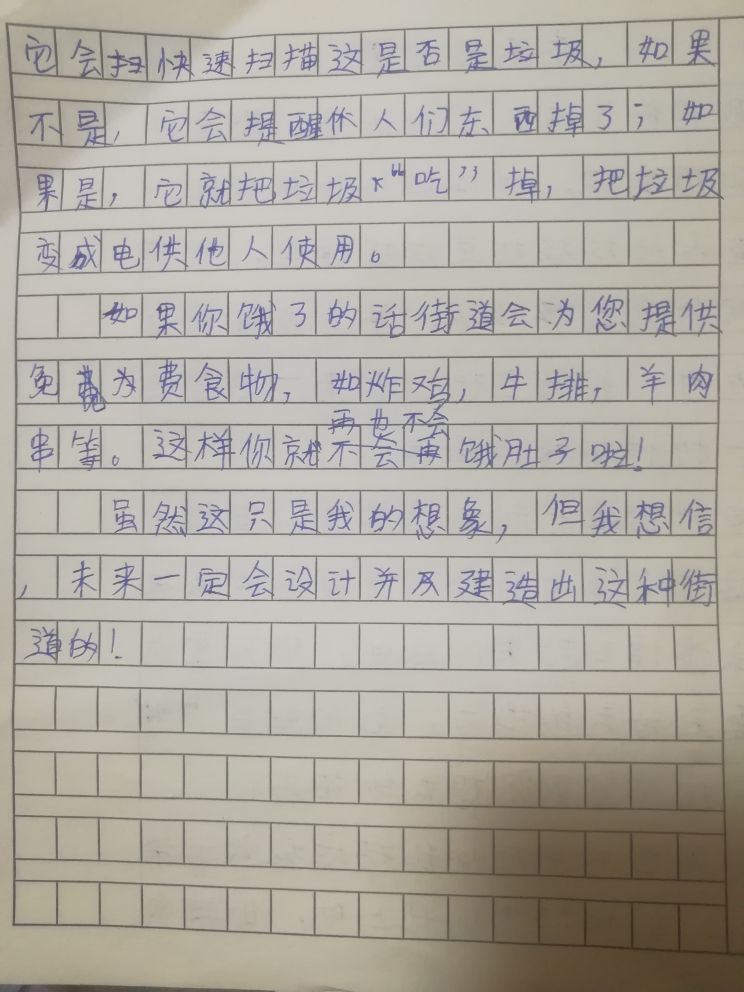 它会扫快速扫描这是否是垃圾，如果
不是，它会提醒休人们东西掉了；如
果是，它就把垃圾“吃”掉，把垃圾
变成电供他人使用。
如果你饿了的话街道会为您提供
免为费食物，如炸鸡，牛排，羊肉
再也不会
串等。这样你就不会再饿肚子啦！
虽然这只是我的想象，但我想信
，未来一定会设计并及建造出这种街
道的！